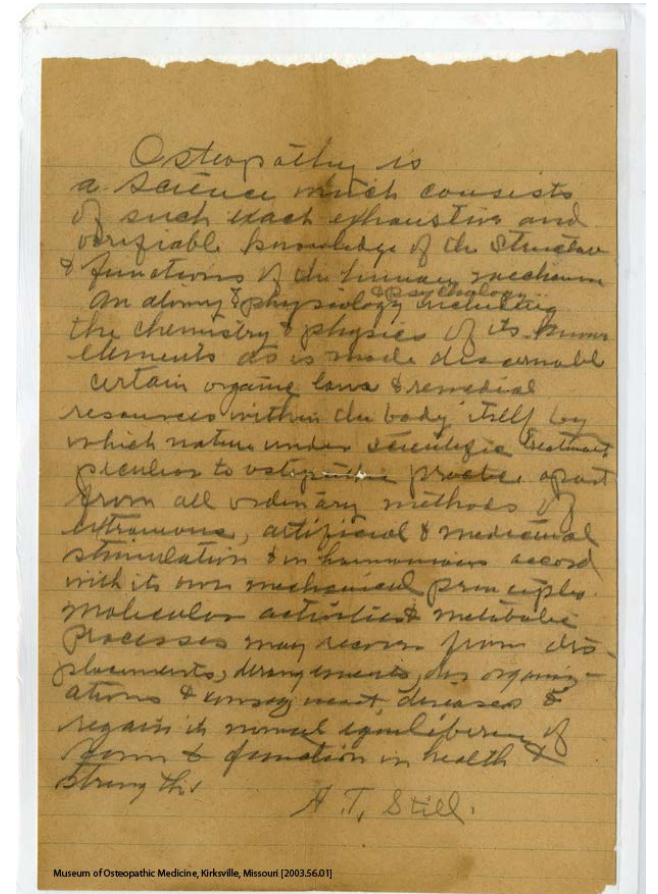 Osteopathy is
a science which consists
of such exact exhaustive and
verifiable knowledge of the structure
& functions of the human mechanism
anatomy & physiology & psychology including
the chemistry & physics of its known
elements as is made discernable
certain organic laws & remedial
resources within the body itself by
which nature under scientific treatment
peculiar to osteopathic practice apart
from all ordinary methods of
extraneous, artificial & medicinal
stimulation & in harmonious accord
with its own mechanical principles
molecular activities & metabolic
processes may recover from dis-
placements, derangements, disorganiz-
ations & consequent diseases &
regain its normal equilibrium of
form & function in health &
strength.
A. T. Still.
Museum of Osteopathic Medicine, Kirksville, Missouri [2003.56.01]